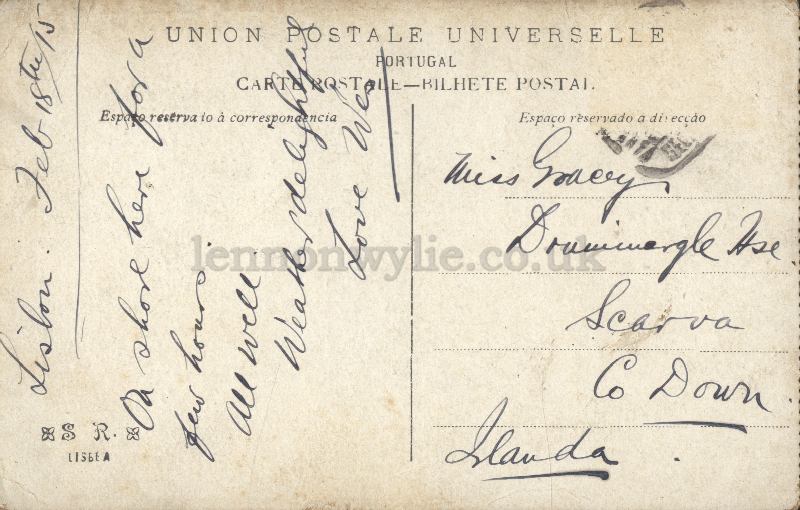 UNION POSTALE UNIVERSELLE
PORTUGAL
CARTE POSTALE—BILHETE POSTAL.
Espaço reservado á correspondencia
Espaço reservado a direcção
Lisbon. Feb 18th/15
On shore here for a
few hours.
All well.
Weather delightful
Love
Miss Gracey
Drumminargle Hse
Scarva
Co Down.
Irlanda.
S R.
LISBOA
lennonwylie.co.uk